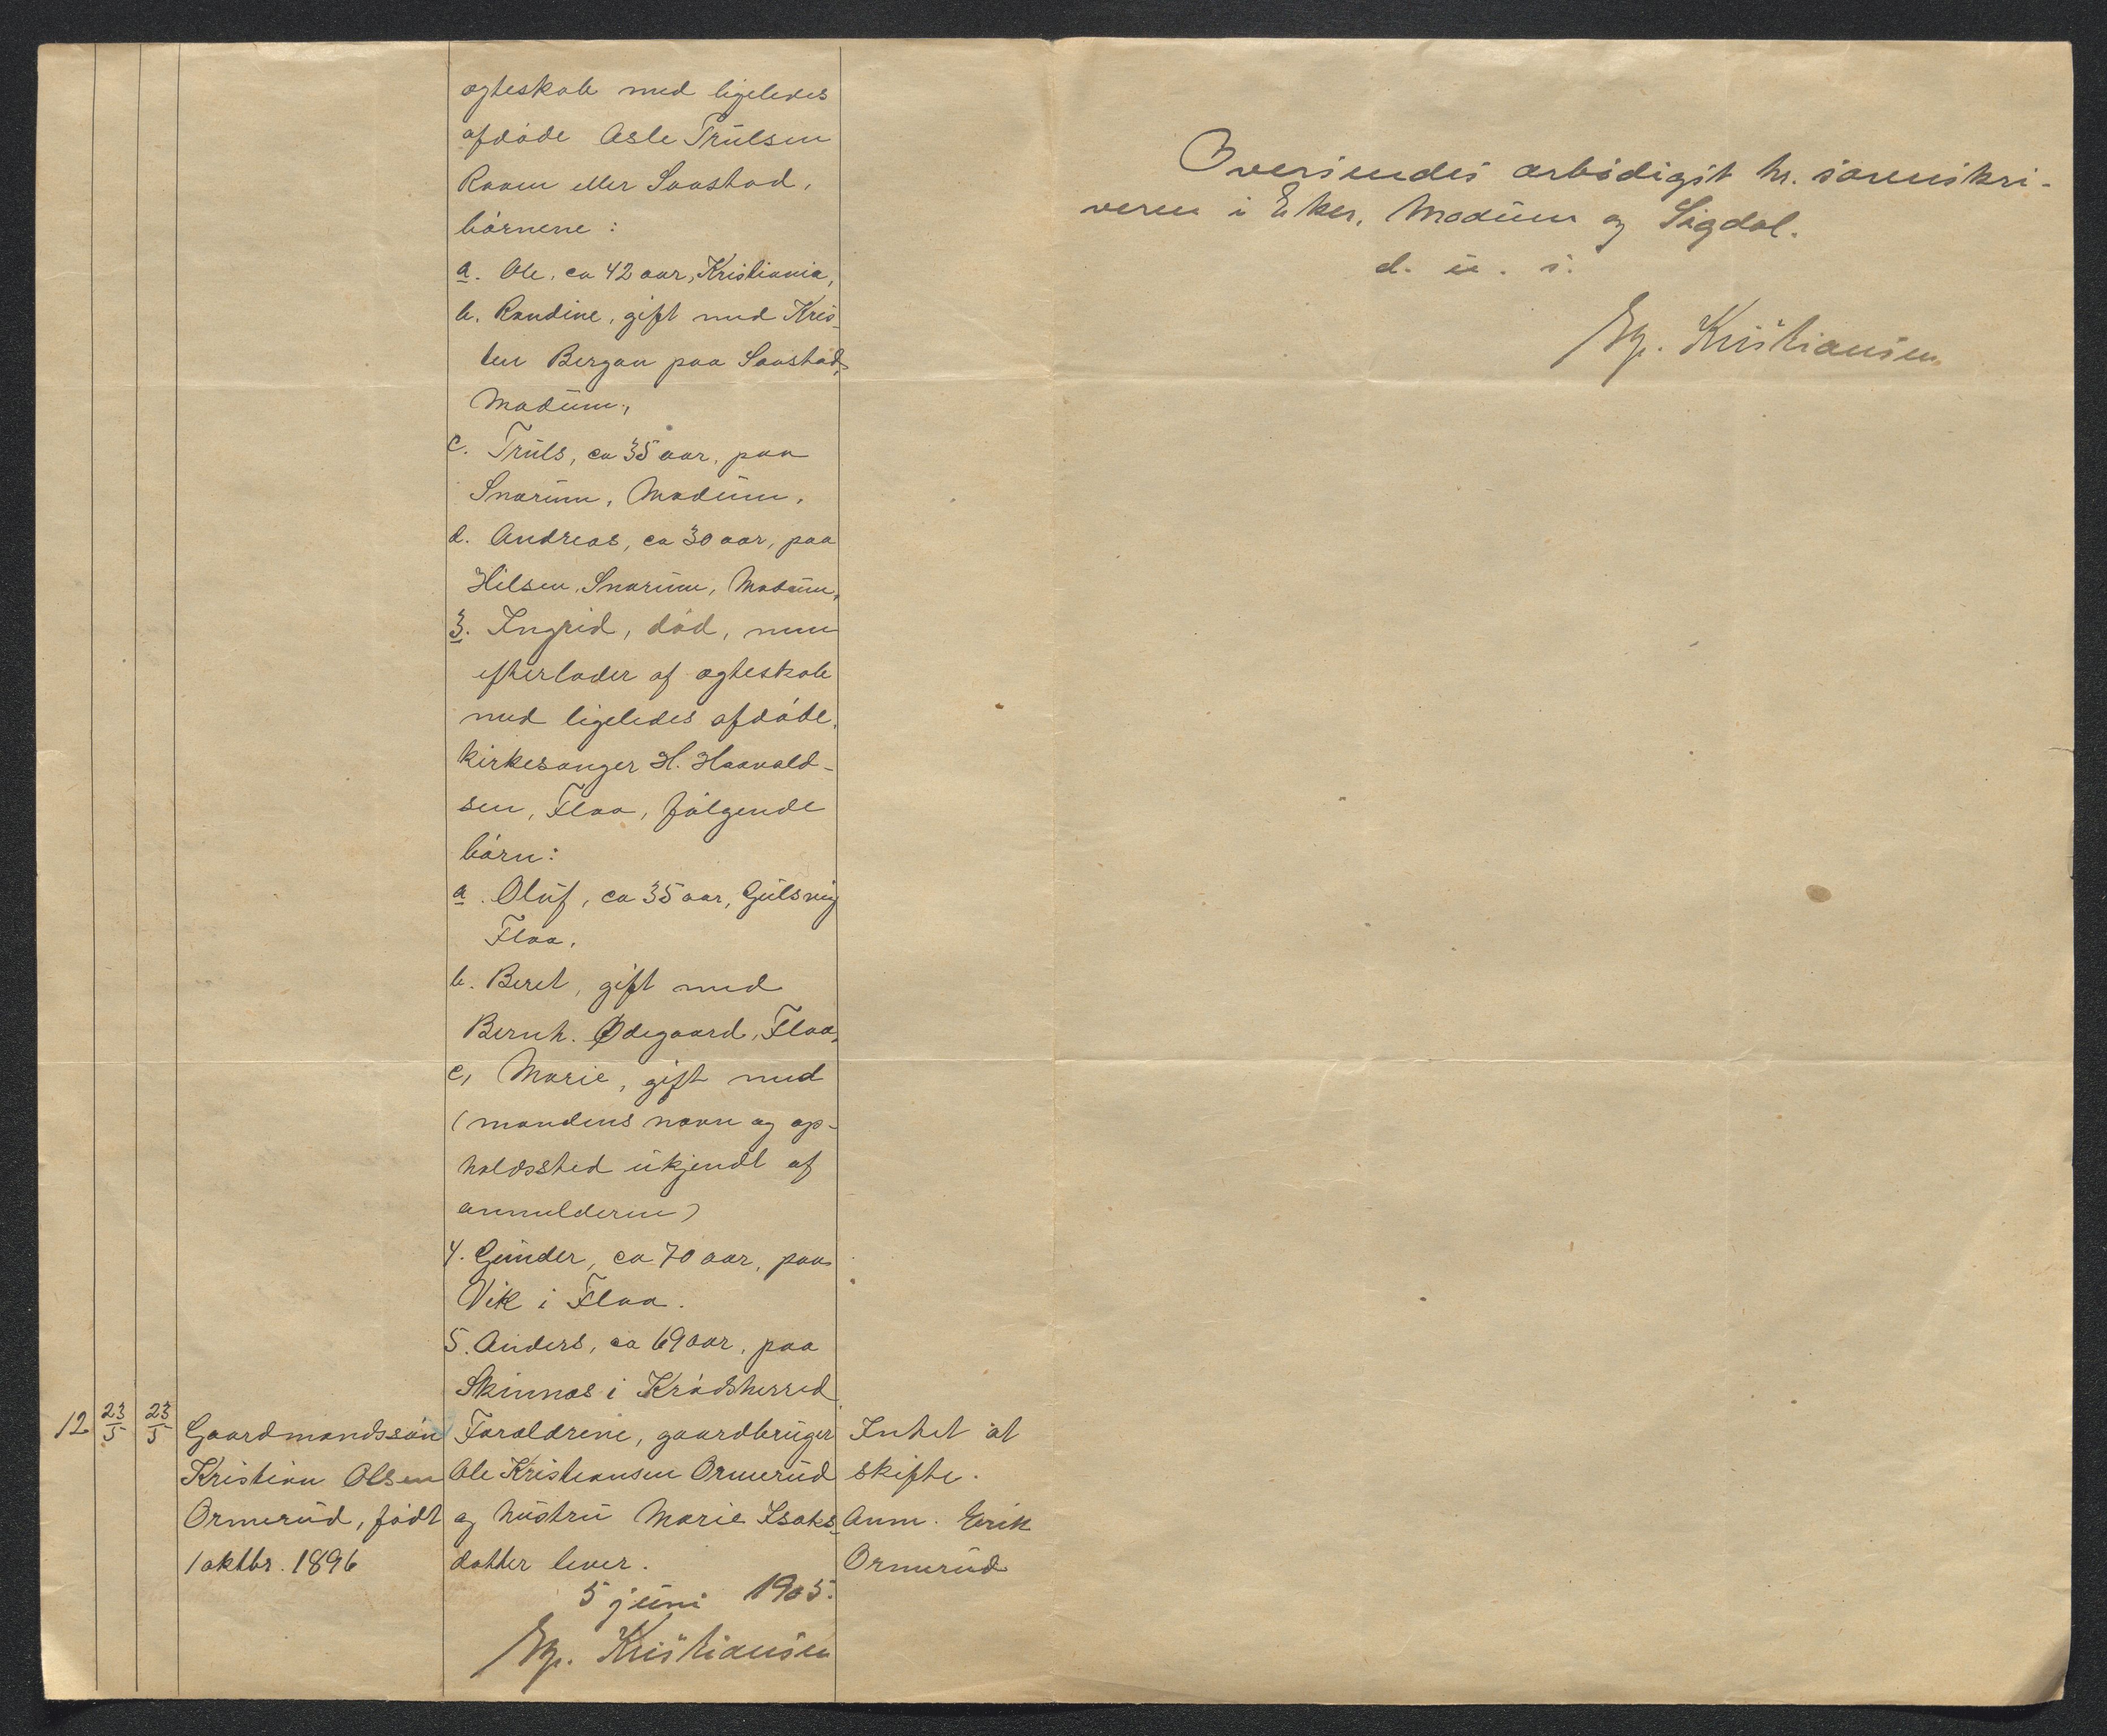 ægteskab med ligeledes
afdøde Asle Trulsen
Raaen eller Saastad,
børnene:
a. Ole, ca 42 aar, Kristiania,
b. Randine, gift med Kris-
ten Bergan paa Saastad,
Modum,
c. Truls, ca 35 aar, paa
Snarum, Modum,
d. Andreas, ca 30 aar, paa
Hilsen, Snarum, Modum,
3. Ingrid, død, men
efterlader af ægteskab
med ligeledes afdøde,
kirkesanger H. Haavald-
sen, Flaa, følgende
børn:
a. Oluf, ca 35 aar, Gulsvig
Flaa,
b. Beret, gift med
Bernh. Ødegaard, Flaa,
c, Marie, gift med
(mandens navn og op-
holdssted ukjendt af
anmelderen)
4. Gunder, ca 70 aar, paa
Vik i Flaa.
5. Anders, ca 69 aar, paa
Skinnæs i Krødsherred
12 23/5 23/5 Gaardmandssøn Forældrene, gaardbruger Intet at
Kristian Olsen Ole Kristiansen Ormerud skifte.
Ormerud, født og hustru Marie Isaks- Anm. Erik
1 oktbr. 1896 datter lever. Ormerud
5 juni 1905.
Kristiansen
Oversendes ærbødigst hr. sorenskri-
veren i Eker, Modum og Sigdal.
d. u. s.
Kristiansen